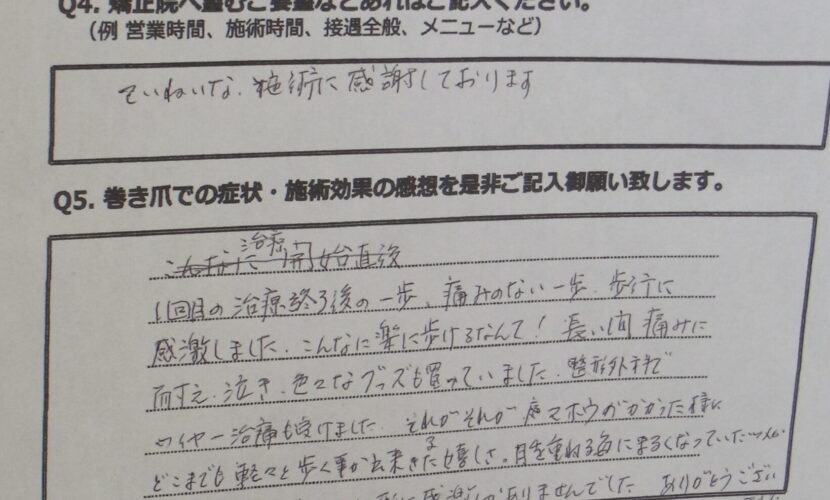 Q4. 矯正院へ望むご要望などあればご記入ください。
(例 営業時間、施術時間、接遇全般、メニューなど)
ていねいな、施術に感謝しております
Q5. 巻き爪での症状・施術効果の感想を是非ご記入御願い致します。
治療
こんなに 開始直後
1回目の治療終了後の一歩、痛みのない一歩、歩行に
感激しました。こんなに楽に歩けるなんて！長い間 痛みに
耐え、泣き、色々なグッズも買っていました。整形外科で
ワイヤー治療も受けました。それがそれが 魔マホウがかかった様に
どこまでも軽々と歩く事が出来きた嬉しさ。月を重ねる毎にまるくなっていたツメが
に感激しかありませんでした ありがとうござい